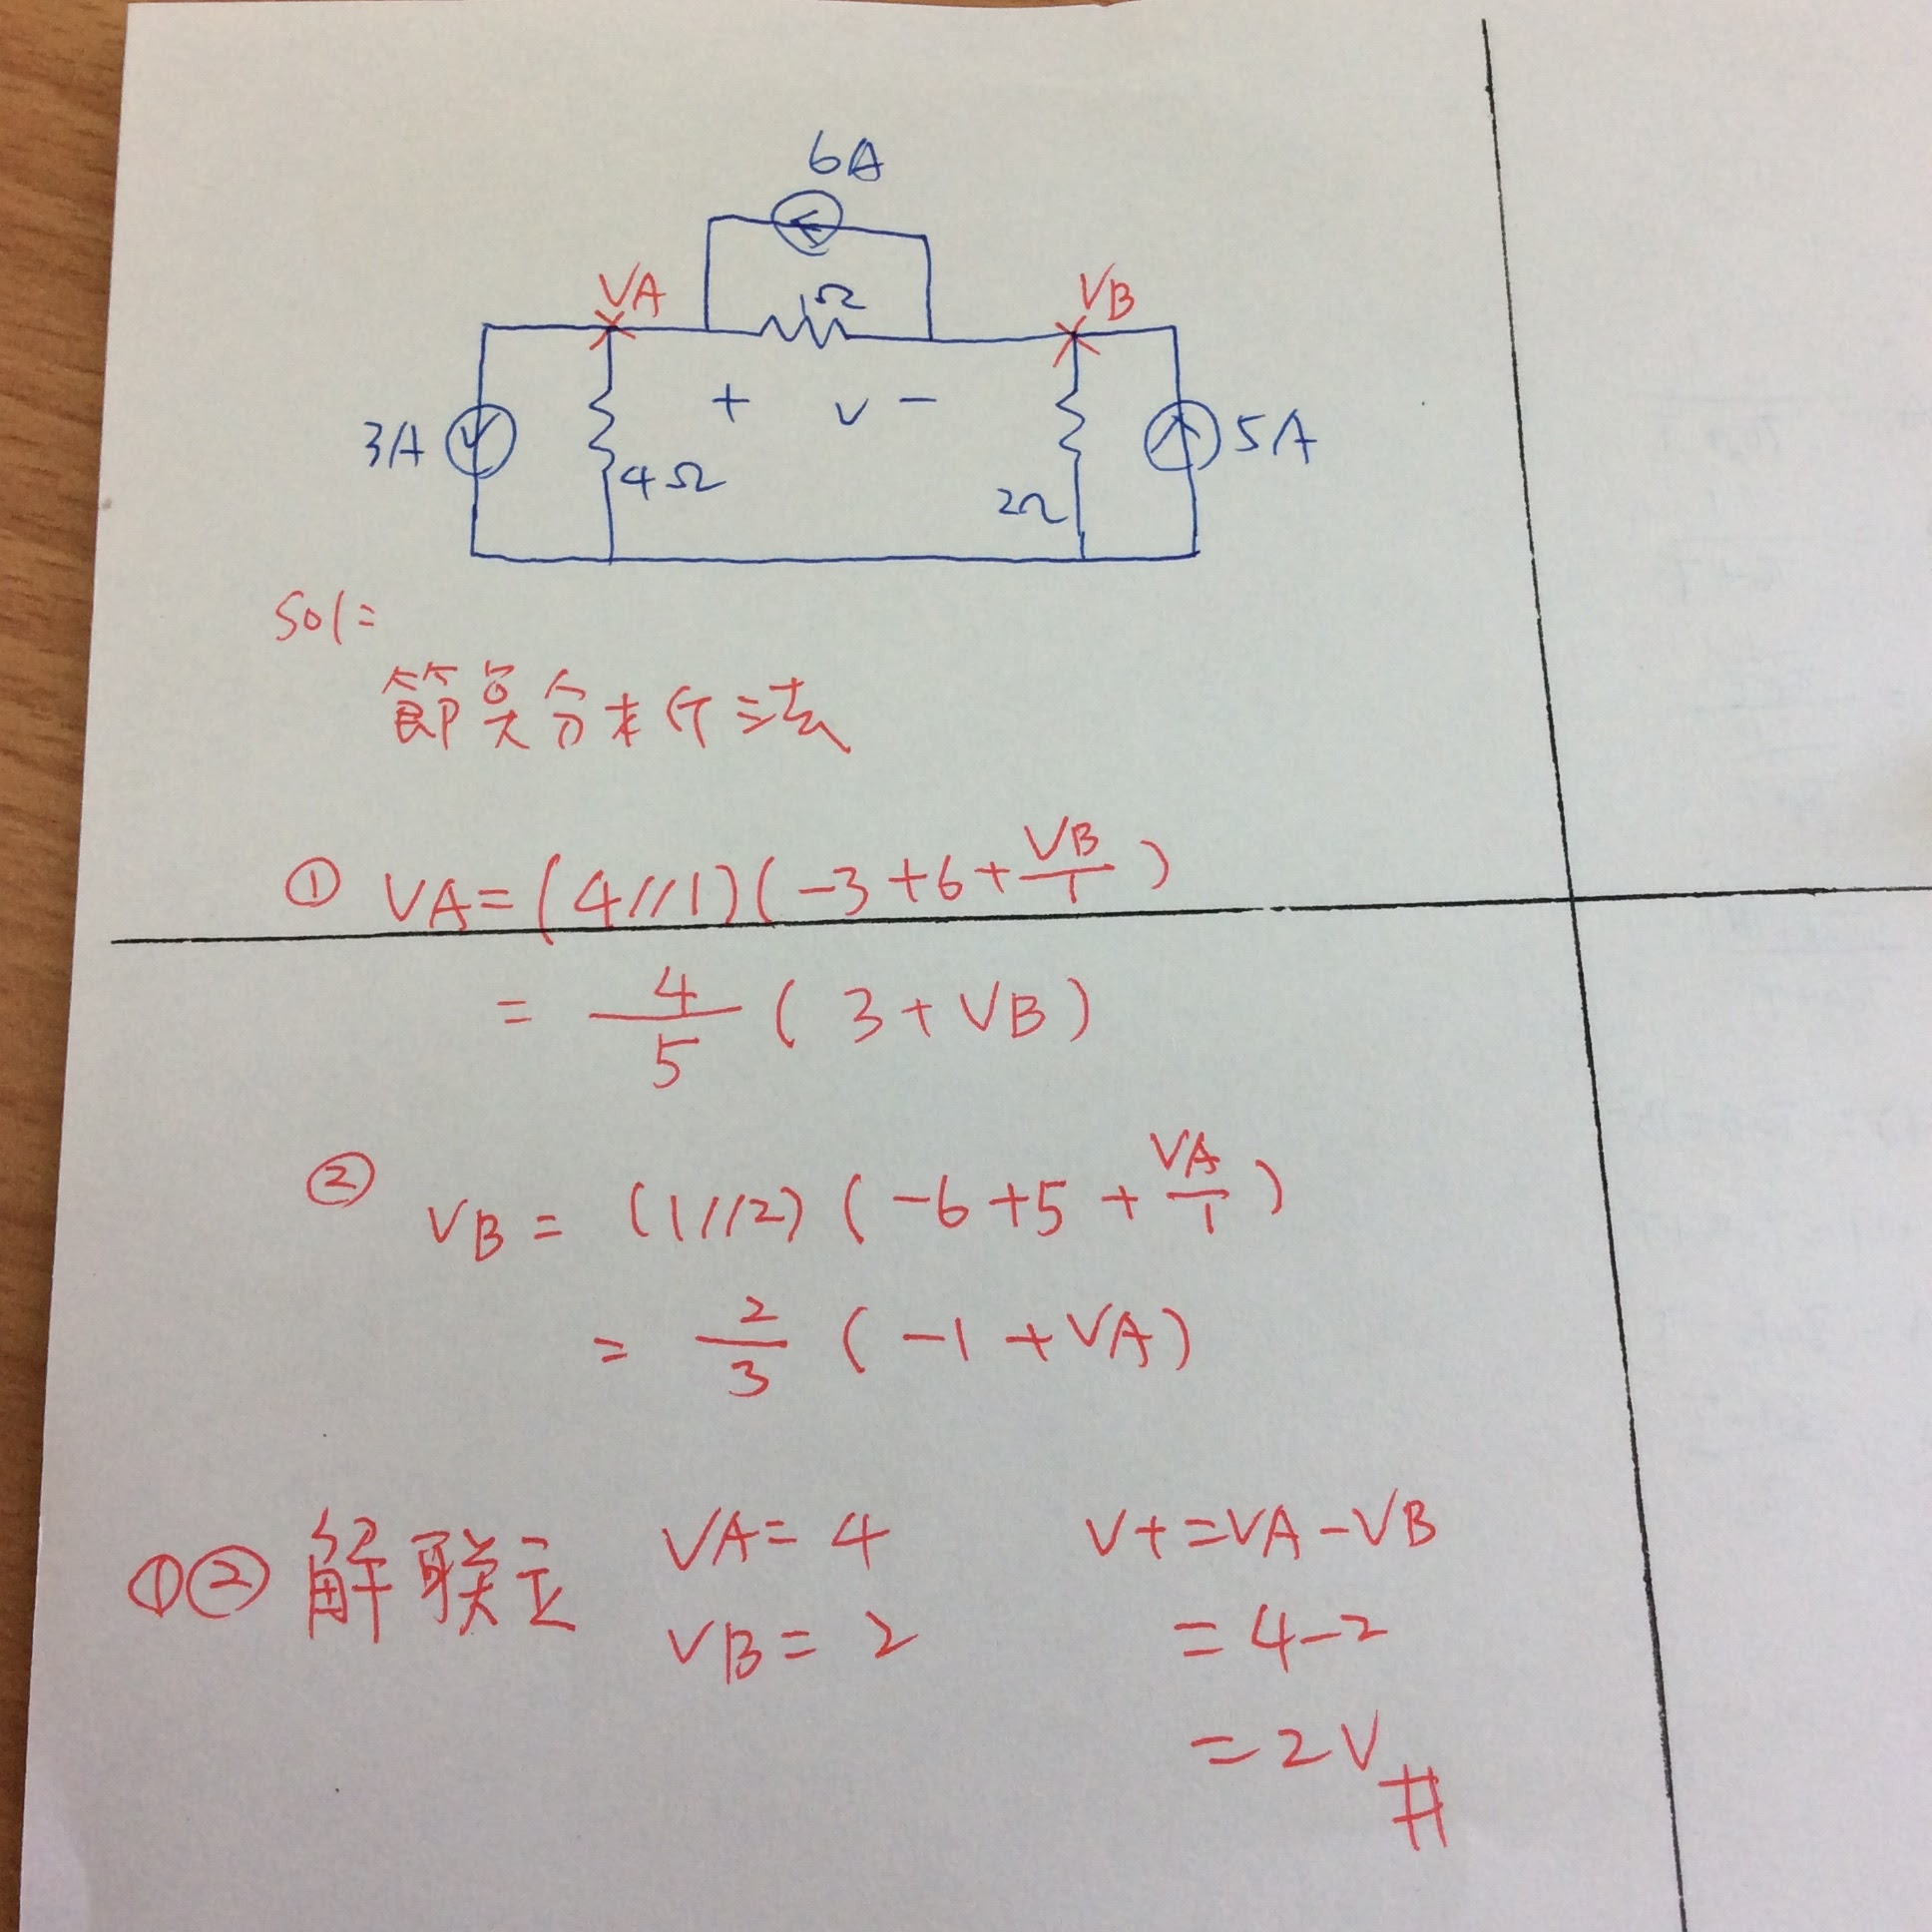 6A
VA
1Ω
VB
3A
4Ω
+ v −
2Ω
5A
Sol=
節奌分析法
① VA=(4//1)(-3+6+VB/1)
= 4/5 (3+VB)
② VB = (1//2)(-6+5+VA/1)
= 2/3 (-1+VA)
①② 解联立 VA=4 V+=VA-VB
VB=2 =4-2
=2V #